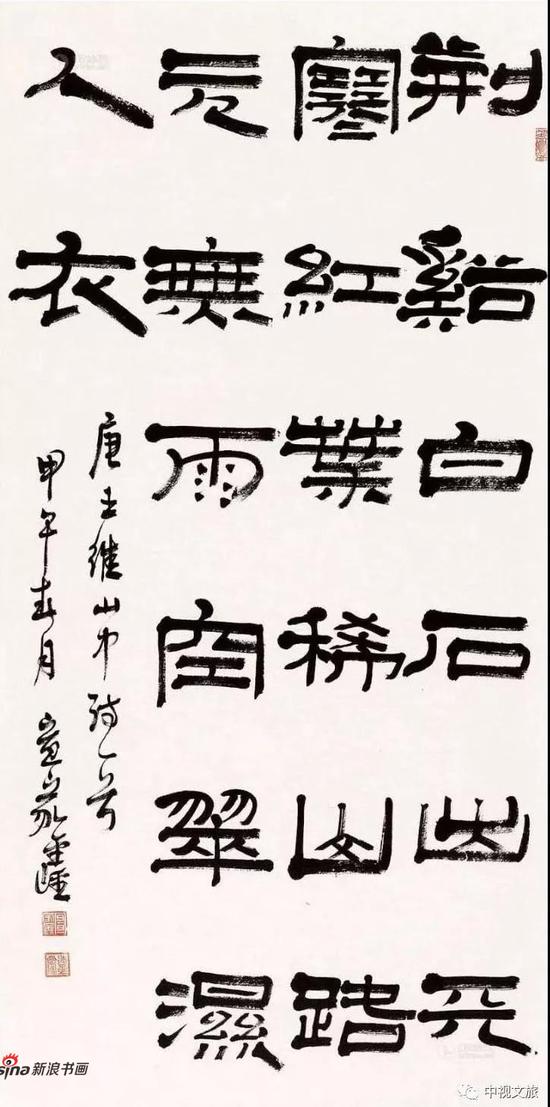 荆谿白石出天
寒紅葉稀山路
元無雨空翠濕
人衣
唐王維山中詩一首
甲午春月
sina新浪书画
中视文旅